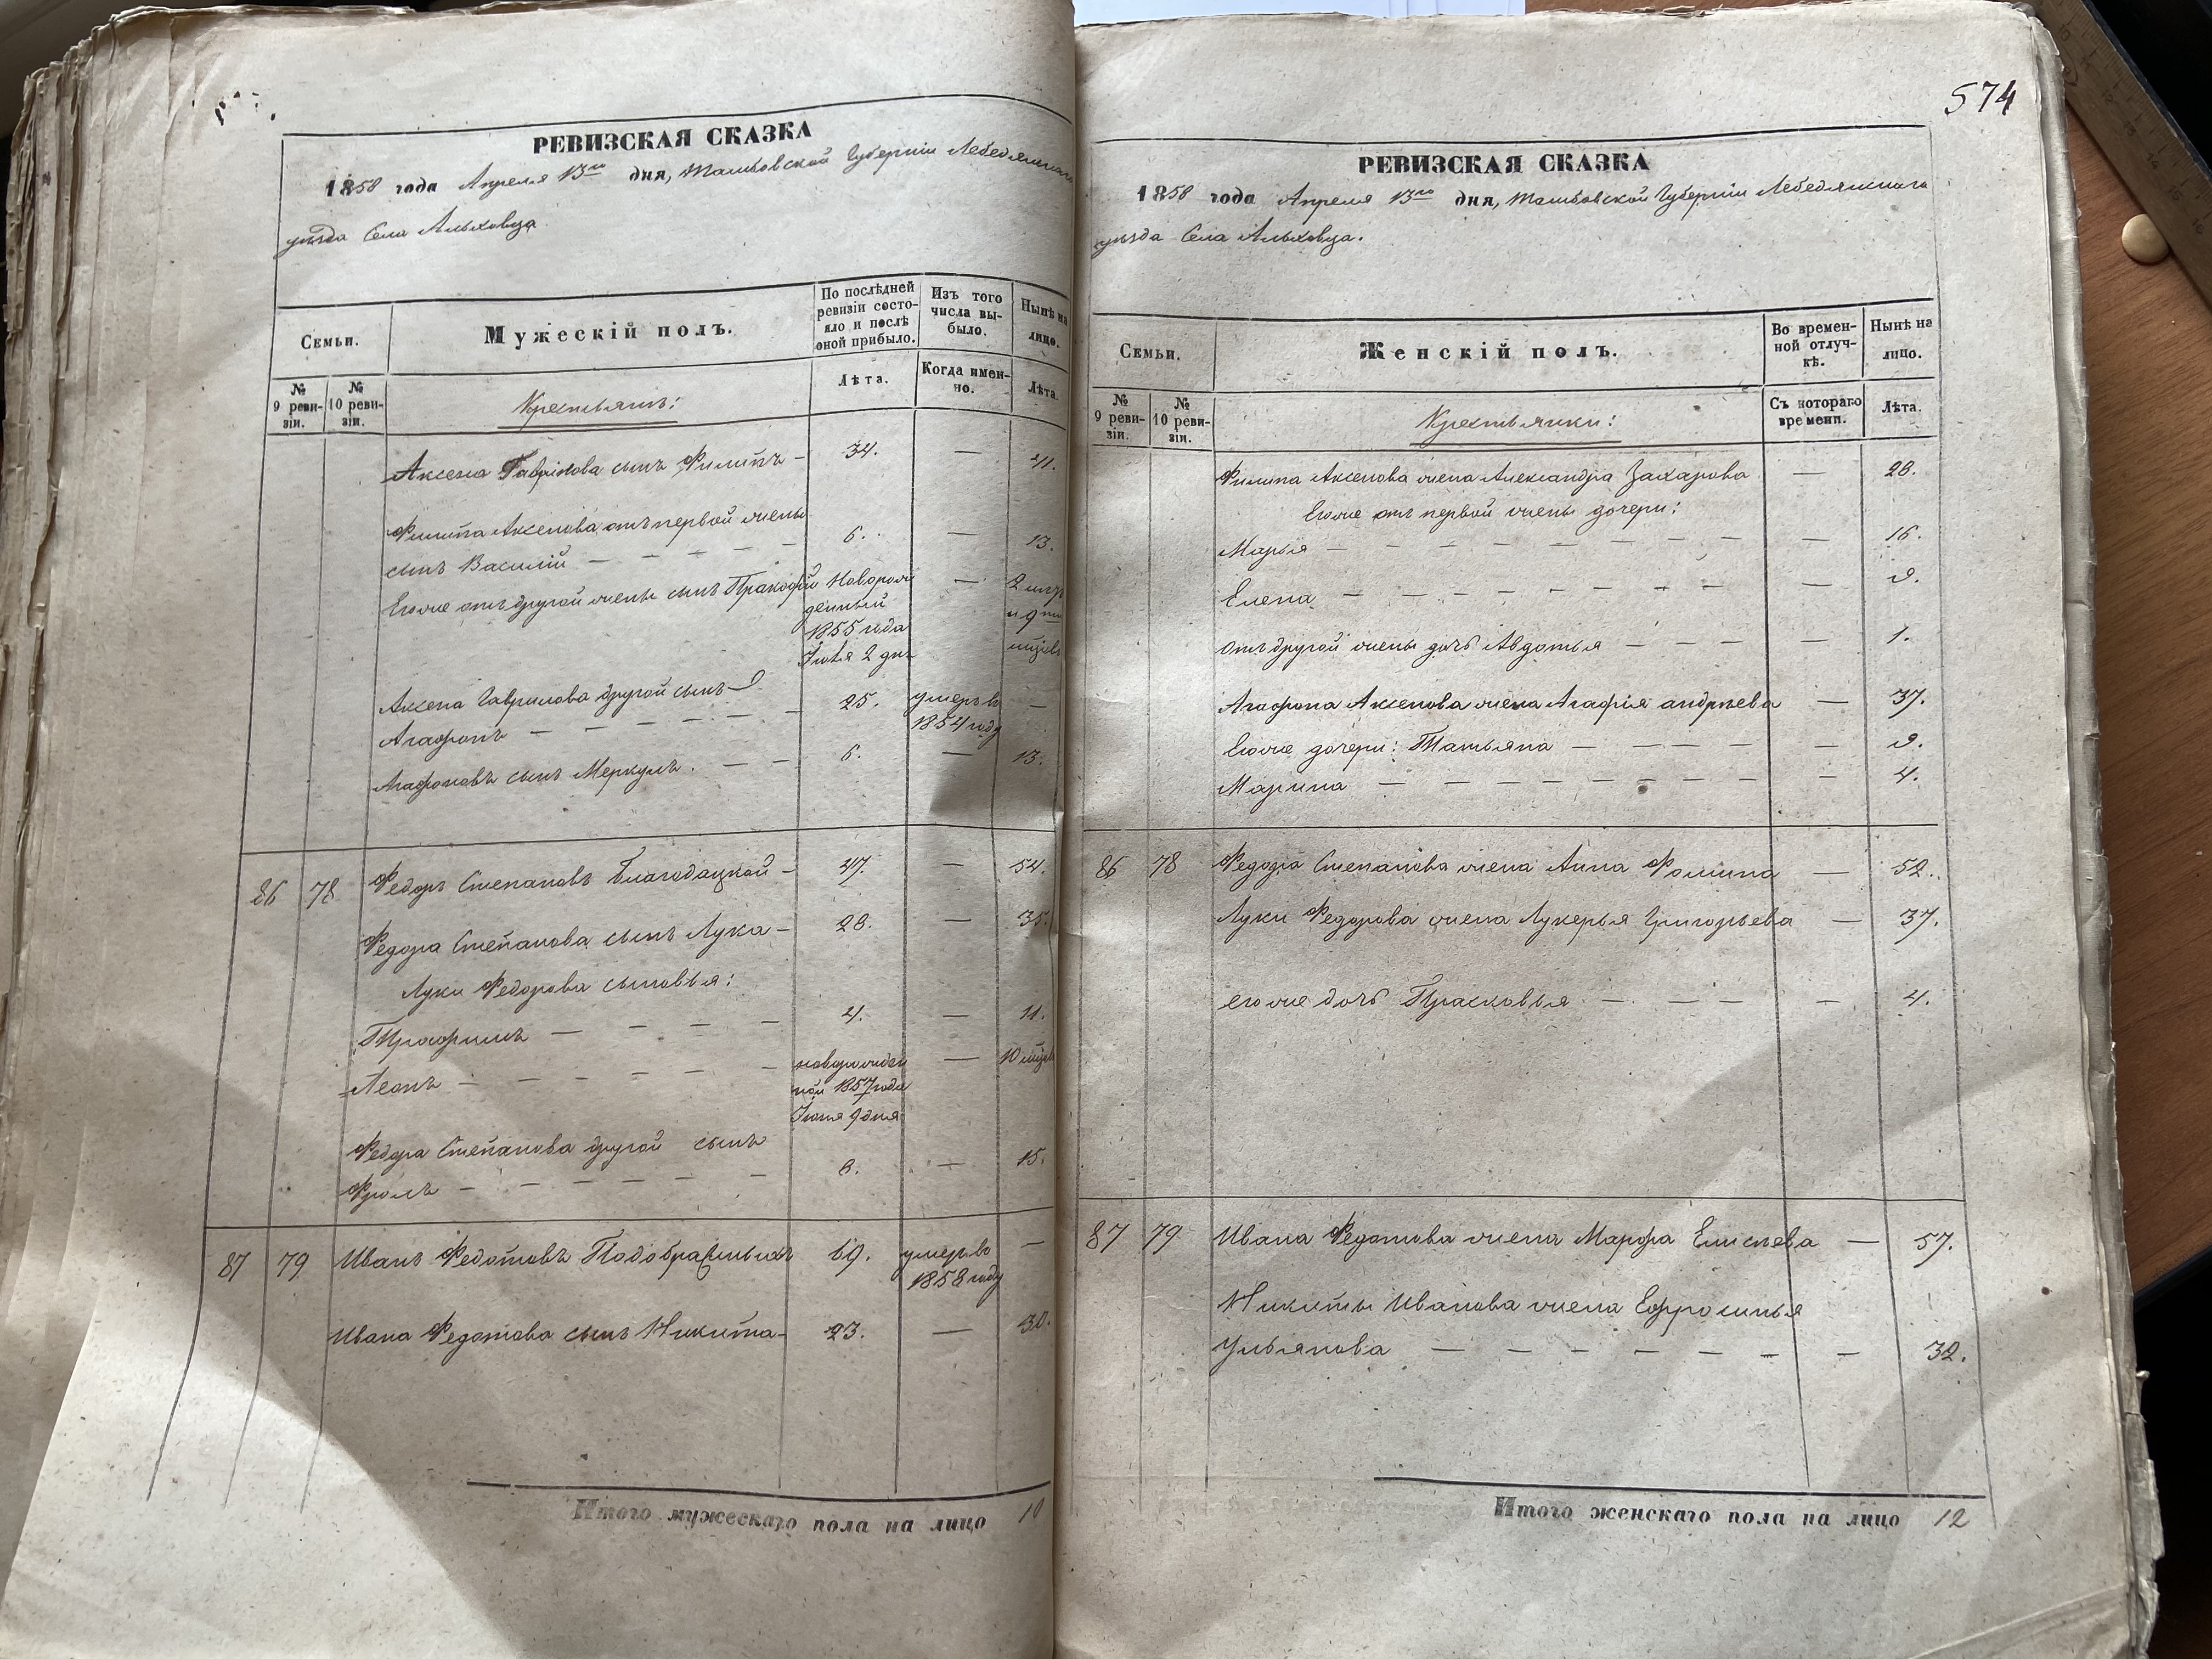 РЕВИЗСКАЯ СКАЗКА
1858 года Апреля 13го дня, Тамбовской Губернiи Лебедянскаго
уѣзда Села Альховца
Семьи.
Мужескiй полъ.
По послѣдней ревизiи состояло и послѣ оной прибыло.
Изъ того числа выбыло.
Нынѣ на лицо.
№ 9 ревизiи.
№ 10 ревизiи.
Крестьянъ:
Лѣта.
Когда именно.
Лѣта.
Аксена Гаврилова сынъ Филипъ — 34. — 41.
Филипа Аксенова отъ первой жены
сынъ Василiй — — — — — 6. — 13.
Егоже отъ другой жены сынъ Пракофiй Новорож —
денный
1855 года
Iюля 2 дня
Аксена Гаврилова другой сынъ
Агафонъ — — — — — 25. умеръ въ 1854 году —
Агафоновъ сынъ Меркулъ. — — 6. — 13.
86 78 Федоръ Степановъ Благодацкой — 47. — 54.
Федора Степанова сынъ Лука — 28. — 35.
Луки Федорова сыновья:
Трофимъ — — — — 4. — 11.
Леонъ — — — — — новорожден — 10 мѣсяц
ной 1857 года
Iюня 9 дня
Федора Степанова другой сынъ
Фролъ — — — — — 8. — 15.
87 79 Иванъ Федотовъ 69. умеръ въ 1858 году —
Ивана Федотова сынъ Никита — 23. — 30.
Итого мужескаго пола на лицо 10
574
РЕВИЗСКАЯ СКАЗКА
1858 года Апреля 13го дня, Тамбовской Губернiи Лебедянскаго
уѣзда Села Альховца.
Семьи.
Женскiй полъ.
Во временной отлучкѣ.
Нынѣ на лицо.
№ 9 ревизiи.
№ 10 ревизiи.
Крестьянки:
Съ котораго времени.
Лѣта.
Филипа Аксенова жена Александра Захарова — 28.
Егоже отъ первой жены дочери:
Марья — — — — — — — — 16.
Елена — — — — — — — — 9.
отъ другой жены дочь Авдотья — — — — 1.
Агафона Аксенова жена Агафiя андреева — 37.
Егоже дочери: Татьяна — — — — — 9.
Марина — — — — — — — — 4.
86 78 Федора Степанова жена Анна Фомина — 52.
Луки Федорова жена Лукерья Григорьева — 37.
егоже дочь Прасковья — — — — — 4.
87 79 Ивана Федотова жена Марфа Елисѣева — 57.
Никиты Иванова жена Ефросинья
Ульянова — — — — — — — 32.
Итого женскаго пола на лицо 12